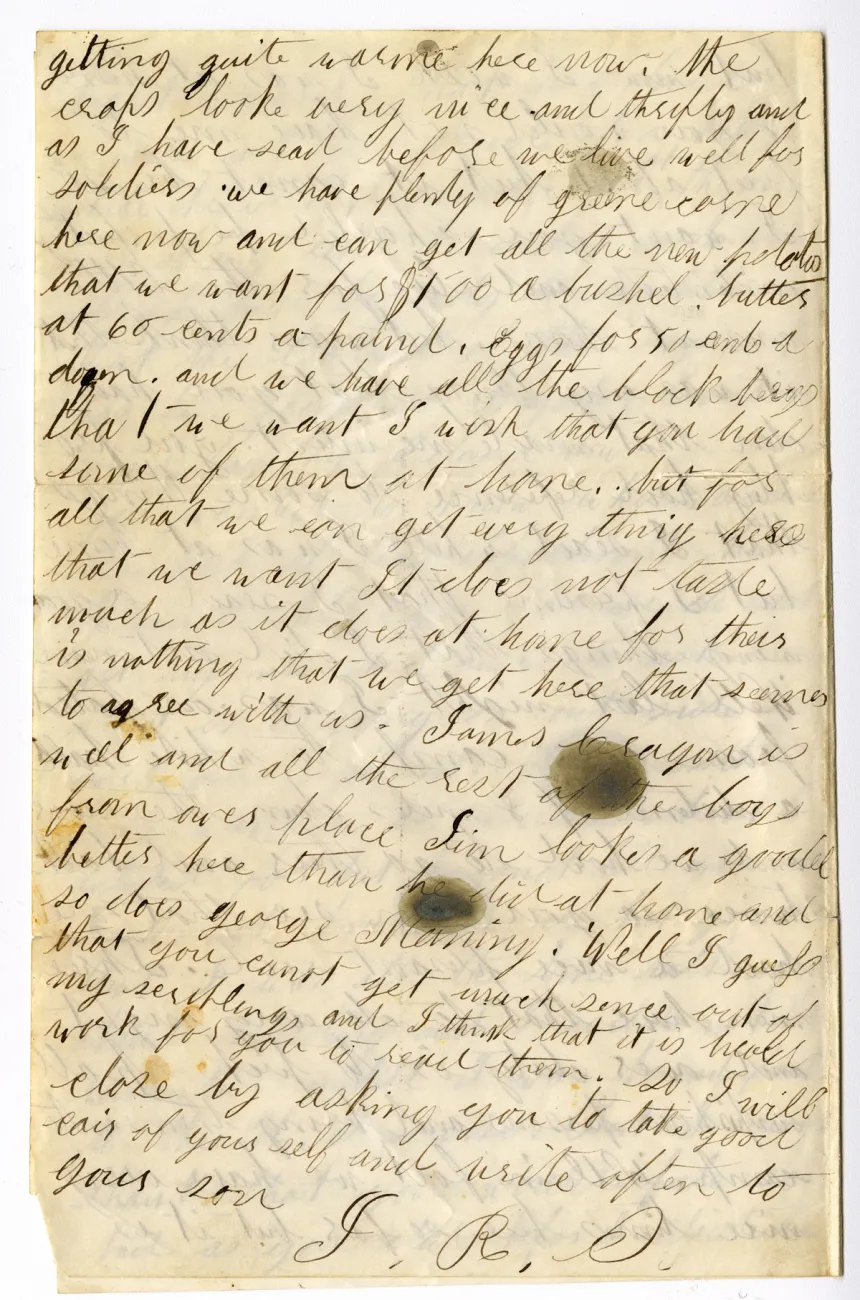 getting quite warme here now. the
crops looke very nice and thrifty and
as I have sead before we live well for
soldiers we have plenty of greene corne
here now and can get all the new potatos
that we want for $1 00 a bushel. butter
at 60 cents a paund. Eggs for 50 cents a
dozen. and we have all the black berys
that we want I wish that you had
some of them at home. but for
all that we can get every thing here
that we want It does not taste
much as it does at home for their
is nothing that we get here that seemes
to agree with us. James Cragon is
well and all the rest of the boys
from owr place Jim lookes a gooded
better here than he did at home and
so does george Maniny. Well I guess
that you canot get much sence out of
my scriblings and I think that it is heard
work for you to read them. so I will
close by asking you to take good
cair of your self and write often to
your son
J. R. S.